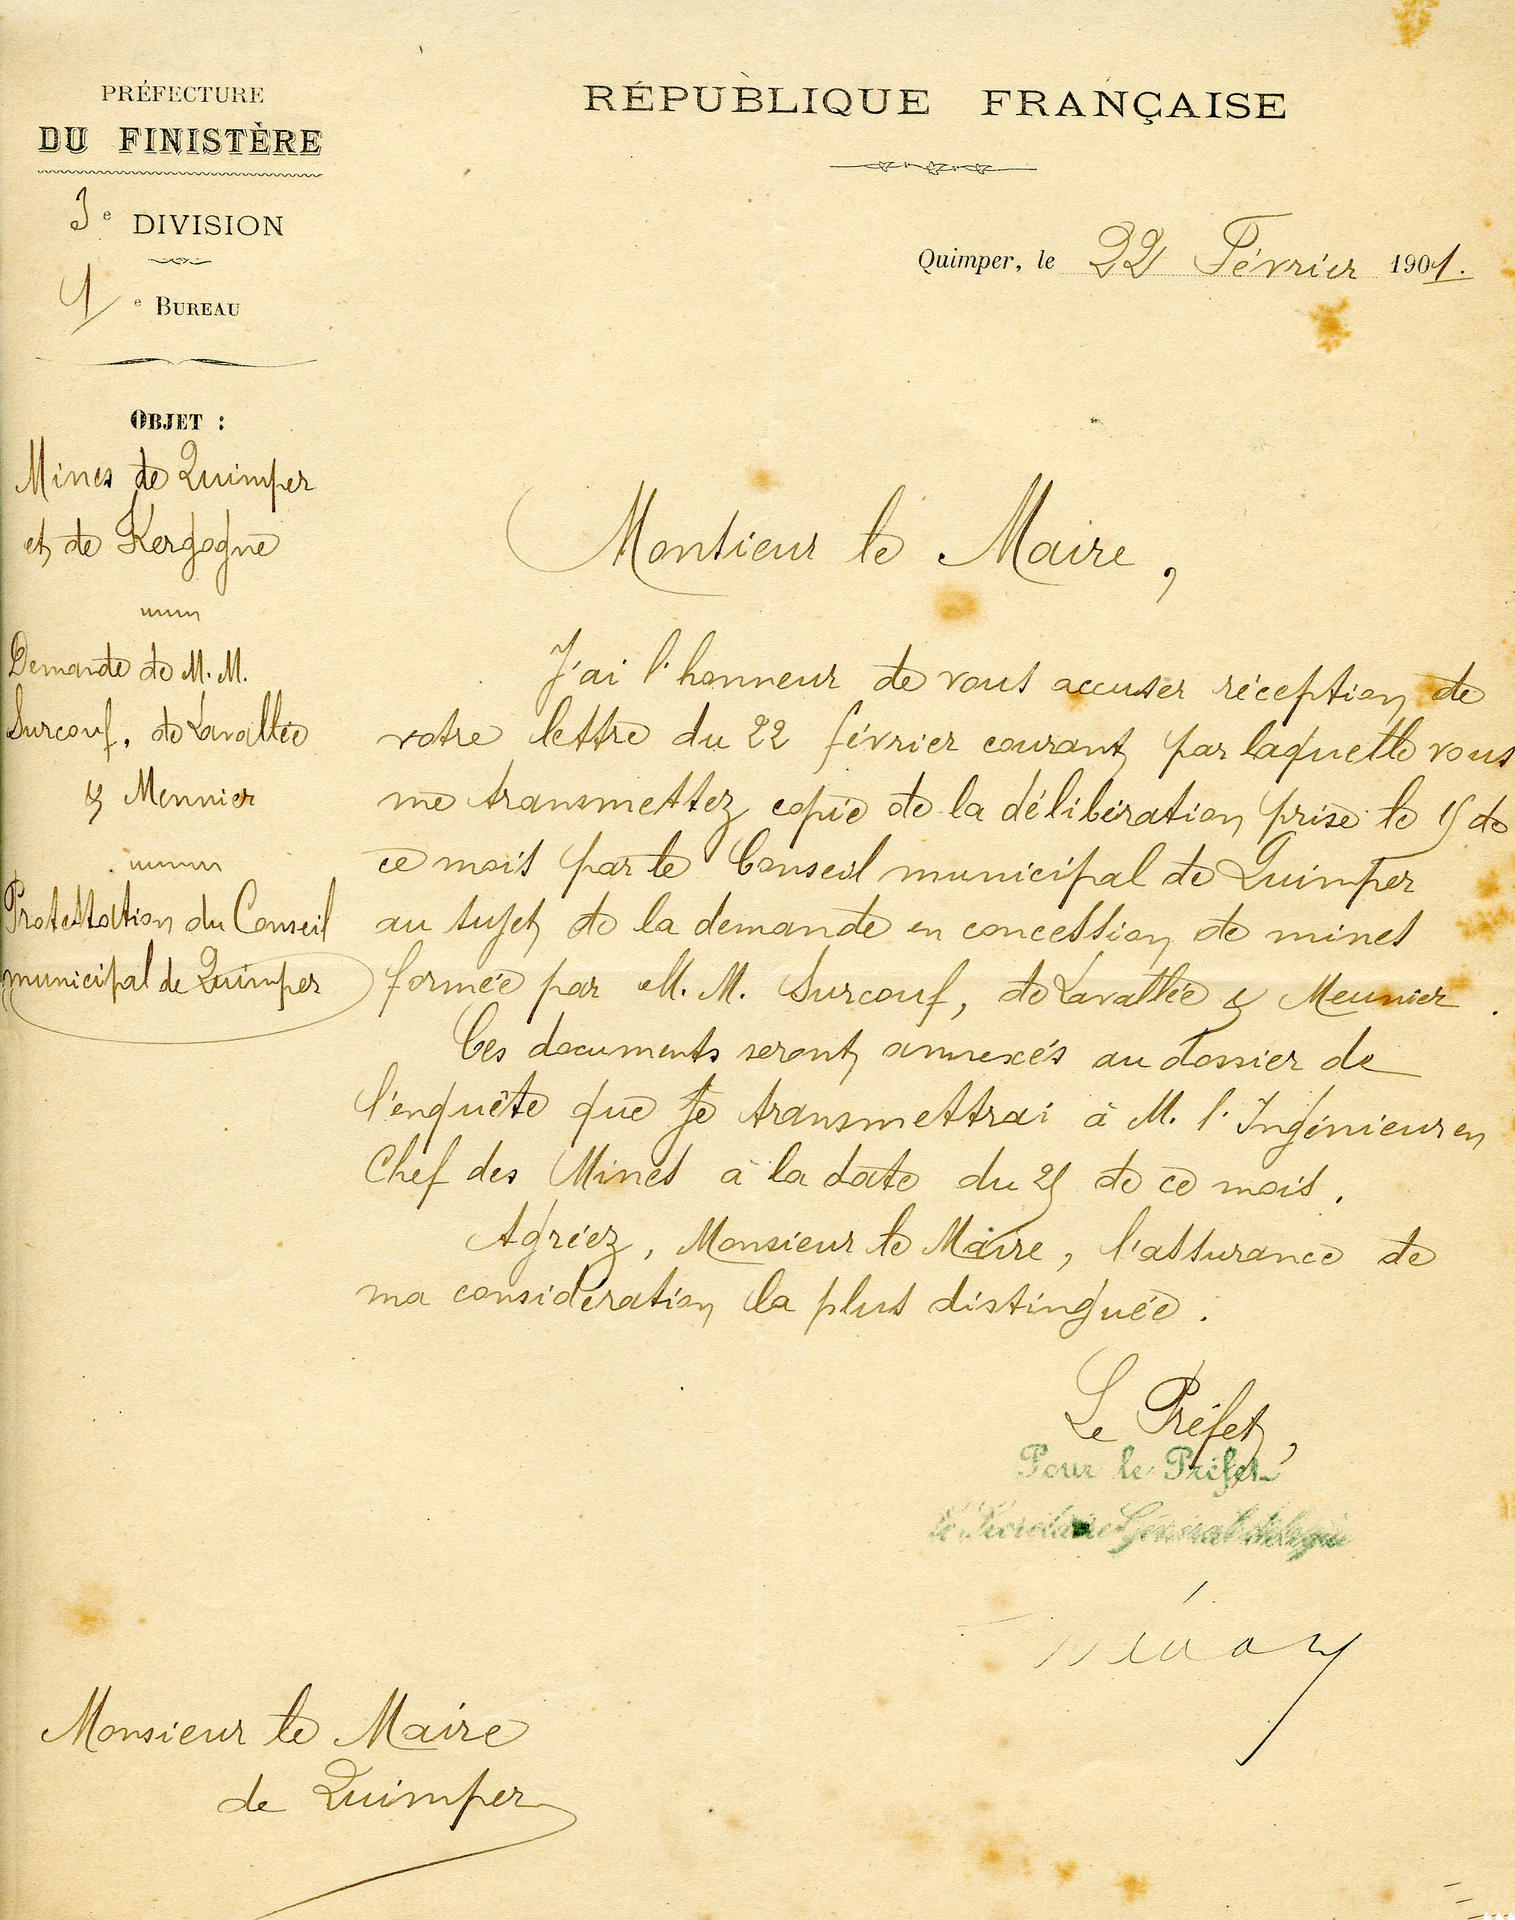 PRÉFECTURE
DU FINISTÈRE
3e DIVISION
1e BUREAU
RÉPUBLIQUE FRANÇAISE
Quimper, le 22 Février 1901.
OBJET :
Mines de Quimper
et de Kergogne
Demande de M. M.
Surcouf, de Lavallée
& Meunier
Protestation du Conseil
municipal de Quimper
Monsieur le Maire,
J'ai l'honneur de vous accuser réception de
votre lettre du 22 février courant par laquelle vous
me transmettez copie de la délibération prise le de
ce mois par le Conseil municipal de Quimper
au sujet de la demande en concession de mines
formée par M. M. Surcouf, de Lavallée & Meunier.
Ces documents seront annexés au dossier de
l'enquête que je transmettrai à M. l'Ingénieur en
Chef des Mines à la date du de ce mois.
Agréez, Monsieur le Maire, l'assurance de
ma considération la plus distinguée.
Le Préfet,
Pour le Préfet
le Secrétaire Général délégué
Monsieur le Maire
de Quimper